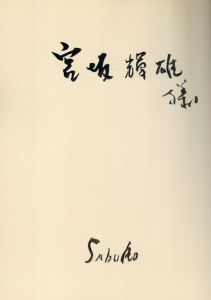 宮坂 輝雄
様
Saburo